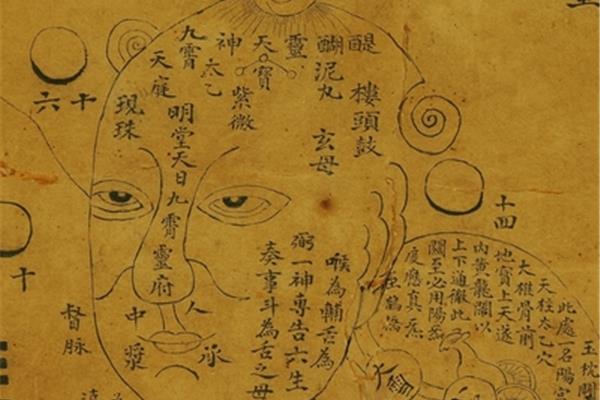 醍醐
樓頭鼓
泥丸
玄母
靈
天寶
紫微
神
太乙
九霄
天庭
現珠
明堂
天日
九霄靈府
人中
承漿
督脈
喉為輔舌為
弼一神專告六生
奏事斗為舌之母
十六
十四
十
玉枕關
此處一名陽宮
天柱太乙穴
大椎骨前
地寶上天遂
內黃龍關以
上下通徹此
關至必用陽
度應真